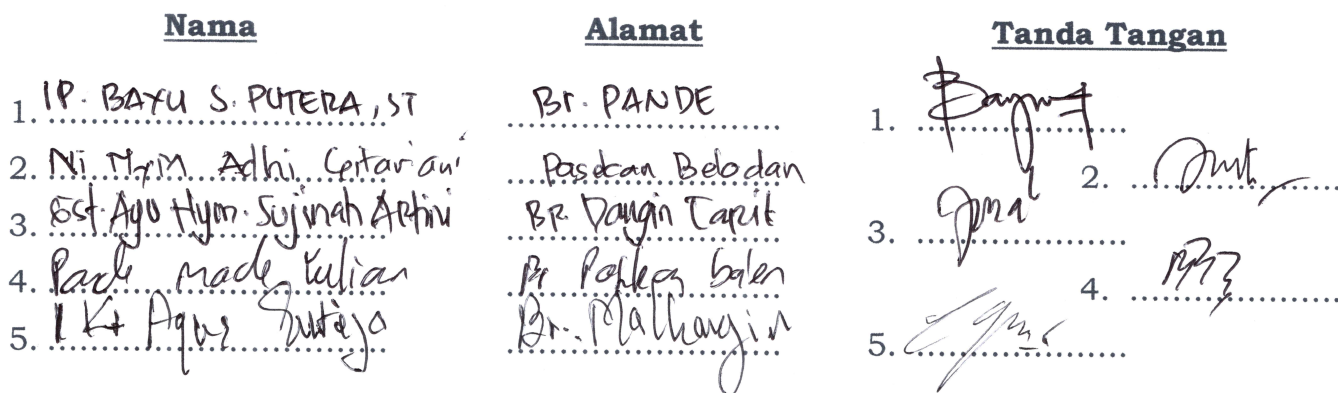 Nama Alamat Tanda Tangan
1. IP. BAYU S. PUTERA, ST Br. PANDE 1.
2. Ni Adhi Pasekan Belodan 2.
3. Gst. Ayu Hym. Sujinah Artini BR. Dangin Carik 3.
4. Pande made Yulian Br 4.
5. I Kt Agus Suteja Br. Malkangin 5.